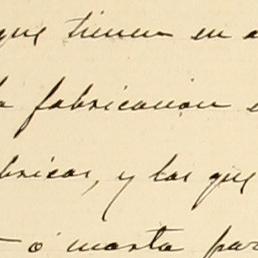 que tienen en a
a fabricacion e
bricas, y las que
ó marta par